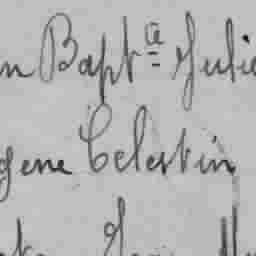 n Bapt^te Julie
gene Celestin